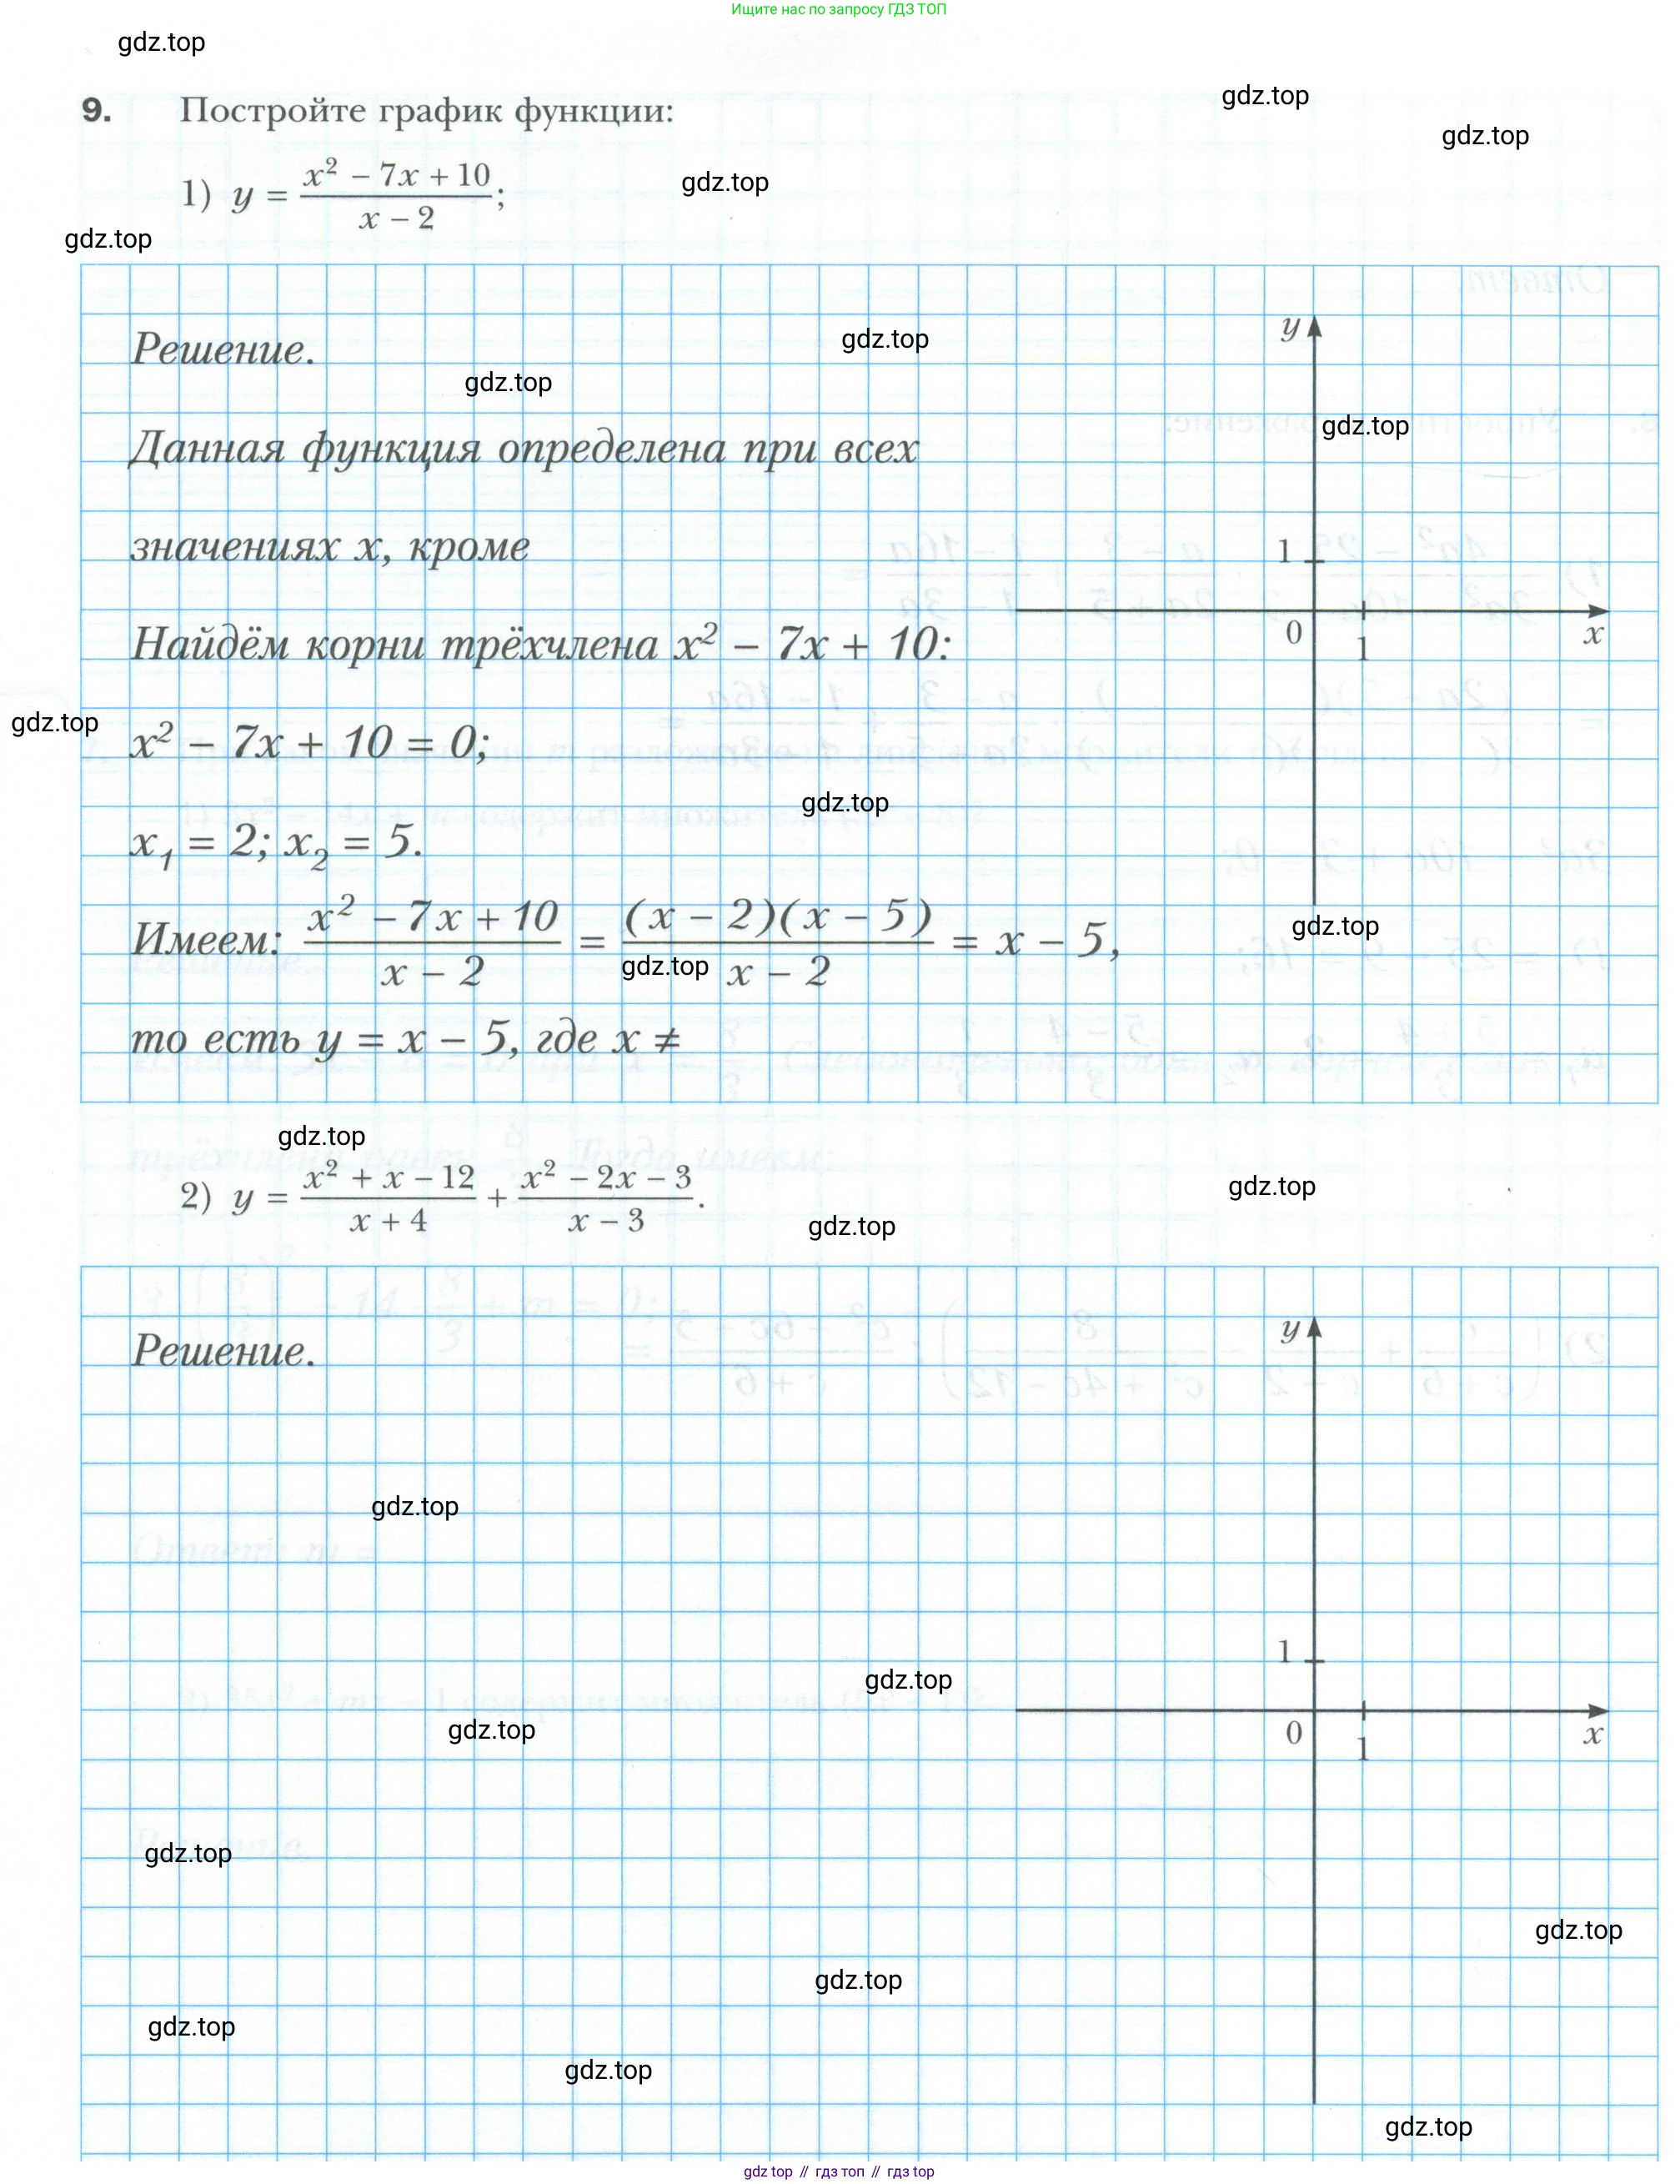 Ищите нас по запросу ГДЗ ТОП
gdz.top
gdz.top
9. Постройте график функции:
gdz.top
1) y = (x² − 7x + 10)/(x − 2);
gdz.top
gdz.top
y
Решение.
gdz.top
gdz.top
gdz.top
Данная функция определена при всех
значениях x, кроме
1
0
1
x
Найдём корни трёхчлена x² − 7x + 10:
gdz.top
x² − 7x + 10 = 0;
gdz.top
x₁ = 2; x₂ = 5.
gdz.top
Имеем: (x² − 7x + 10)/(x − 2) = ((x − 2)(x − 5))/(x − 2) = x − 5,
gdz.top
то есть y = x − 5, где x ≠
gdz.top
2) y = (x² + x − 12)/(x + 4) + (x² − 2x − 3)/(x − 3).
gdz.top
gdz.top
y
Решение.
gdz.top
1
gdz.top
gdz.top
0
1
x
gdz.top
gdz.top
gdz.top
gdz.top
gdz.top
gdz.top
gdz top // гдз топ // гдз top